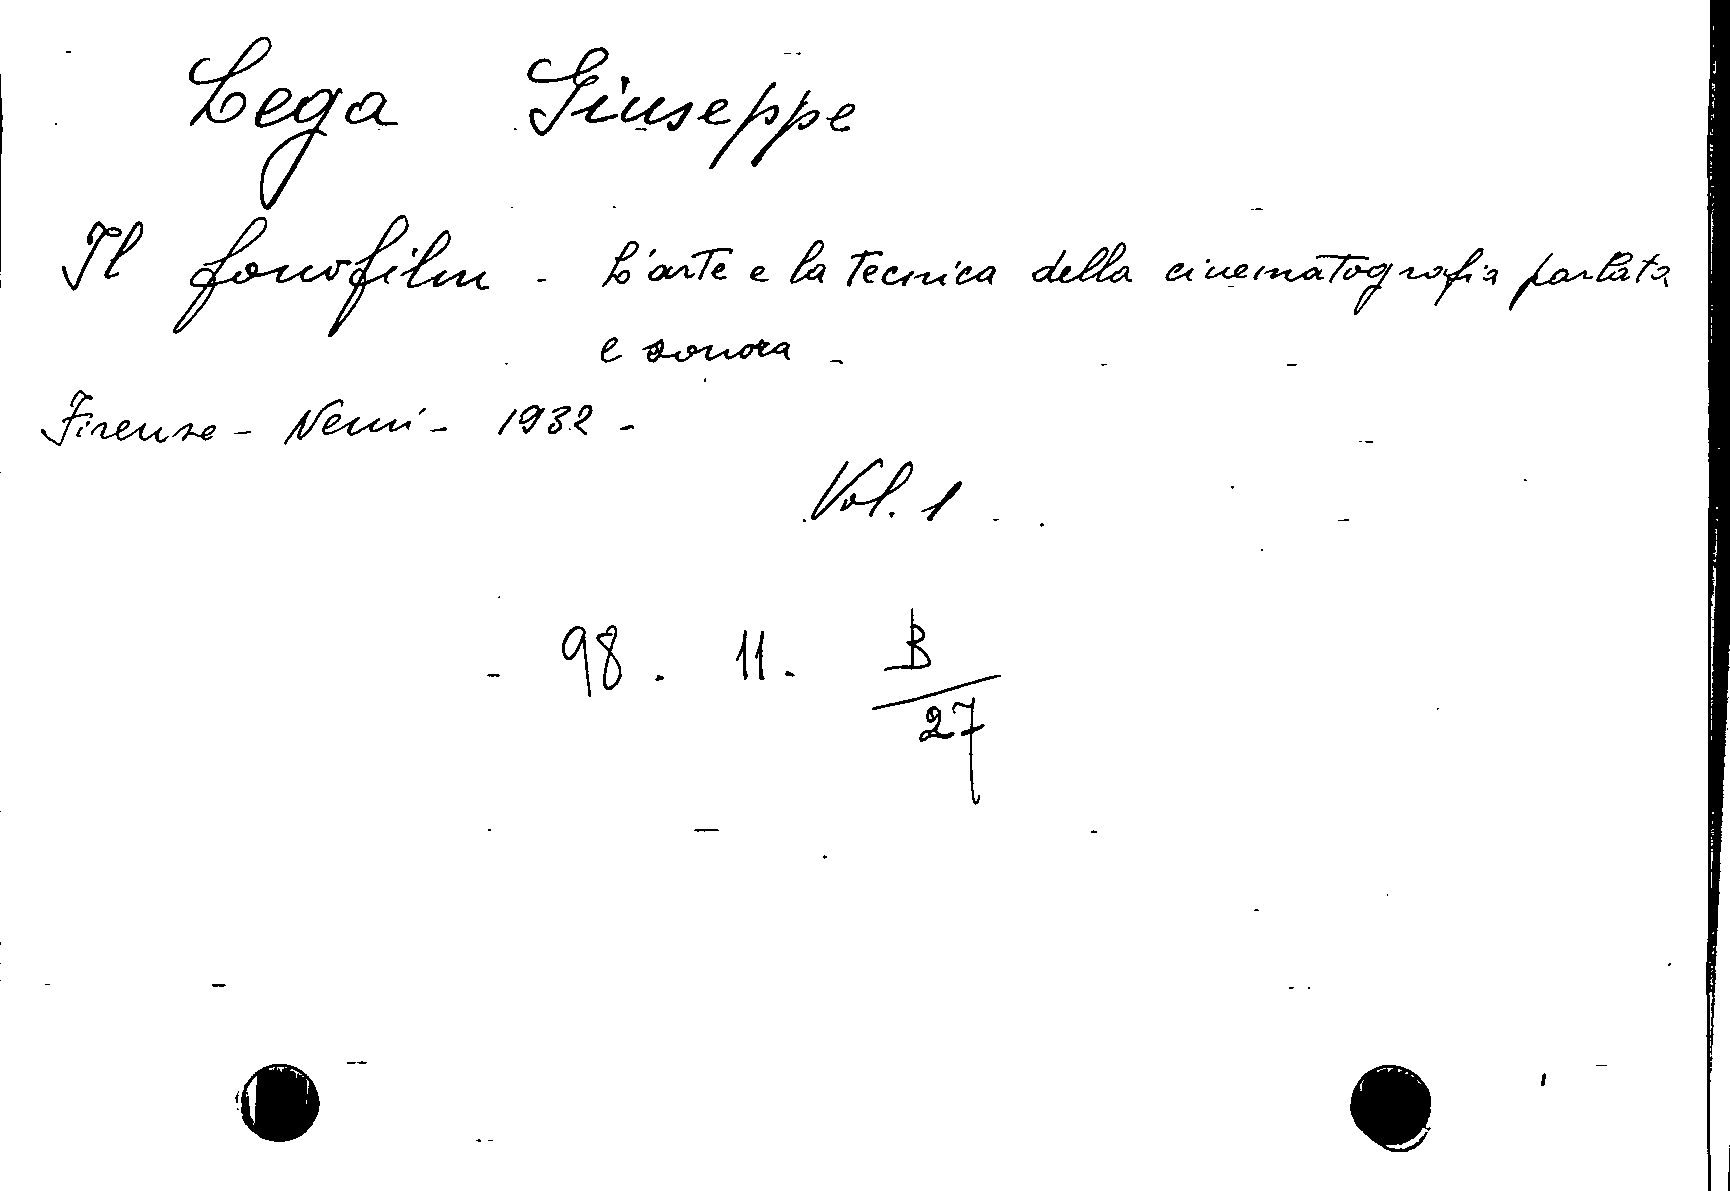 Lega Giuseppe
Il fonofilm - L'arte e la tecnica della cinematografia parlata
e sonora -
Firenze - Nemi - 1932 -
Vol. 1
98. 11. B
27